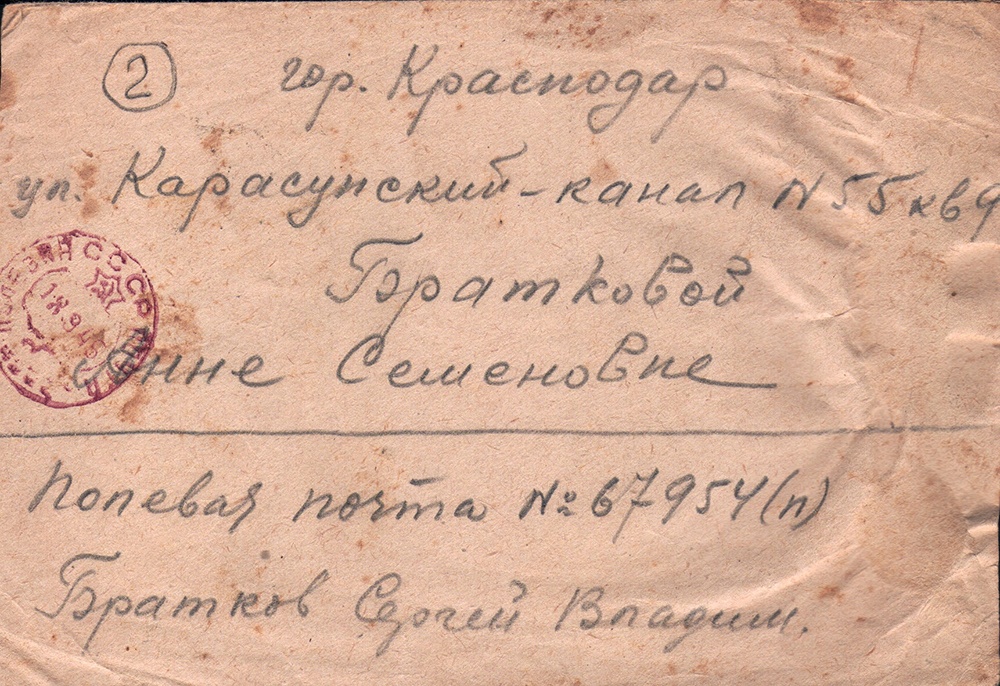 2
гор. Краснодар
ул. Карасунский-канал N 55 кв 9
Братковой
Анне Семеновне
СССР
18 9
Полевая почта № 67954 (п)
Братков Сергей Владим.